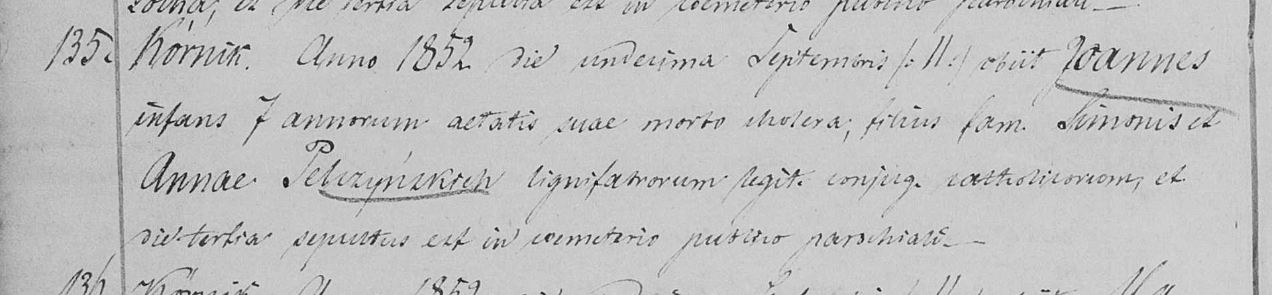 et die tertia sepulta est in coemeterio publico parochiali_
135. Kórnik. Anno 1852 die undecima Septembris /:11:/ obiit Joannes
infans 7 annorum aetatis suae morbo cholera, filius fam. Simonis et
Annae Pelczyńskich lignifabrorum legit. conjug. catholicorum, et
die tertia sepultus est in coemeterio publico parochiali_
136 Kórnik Anno 1852